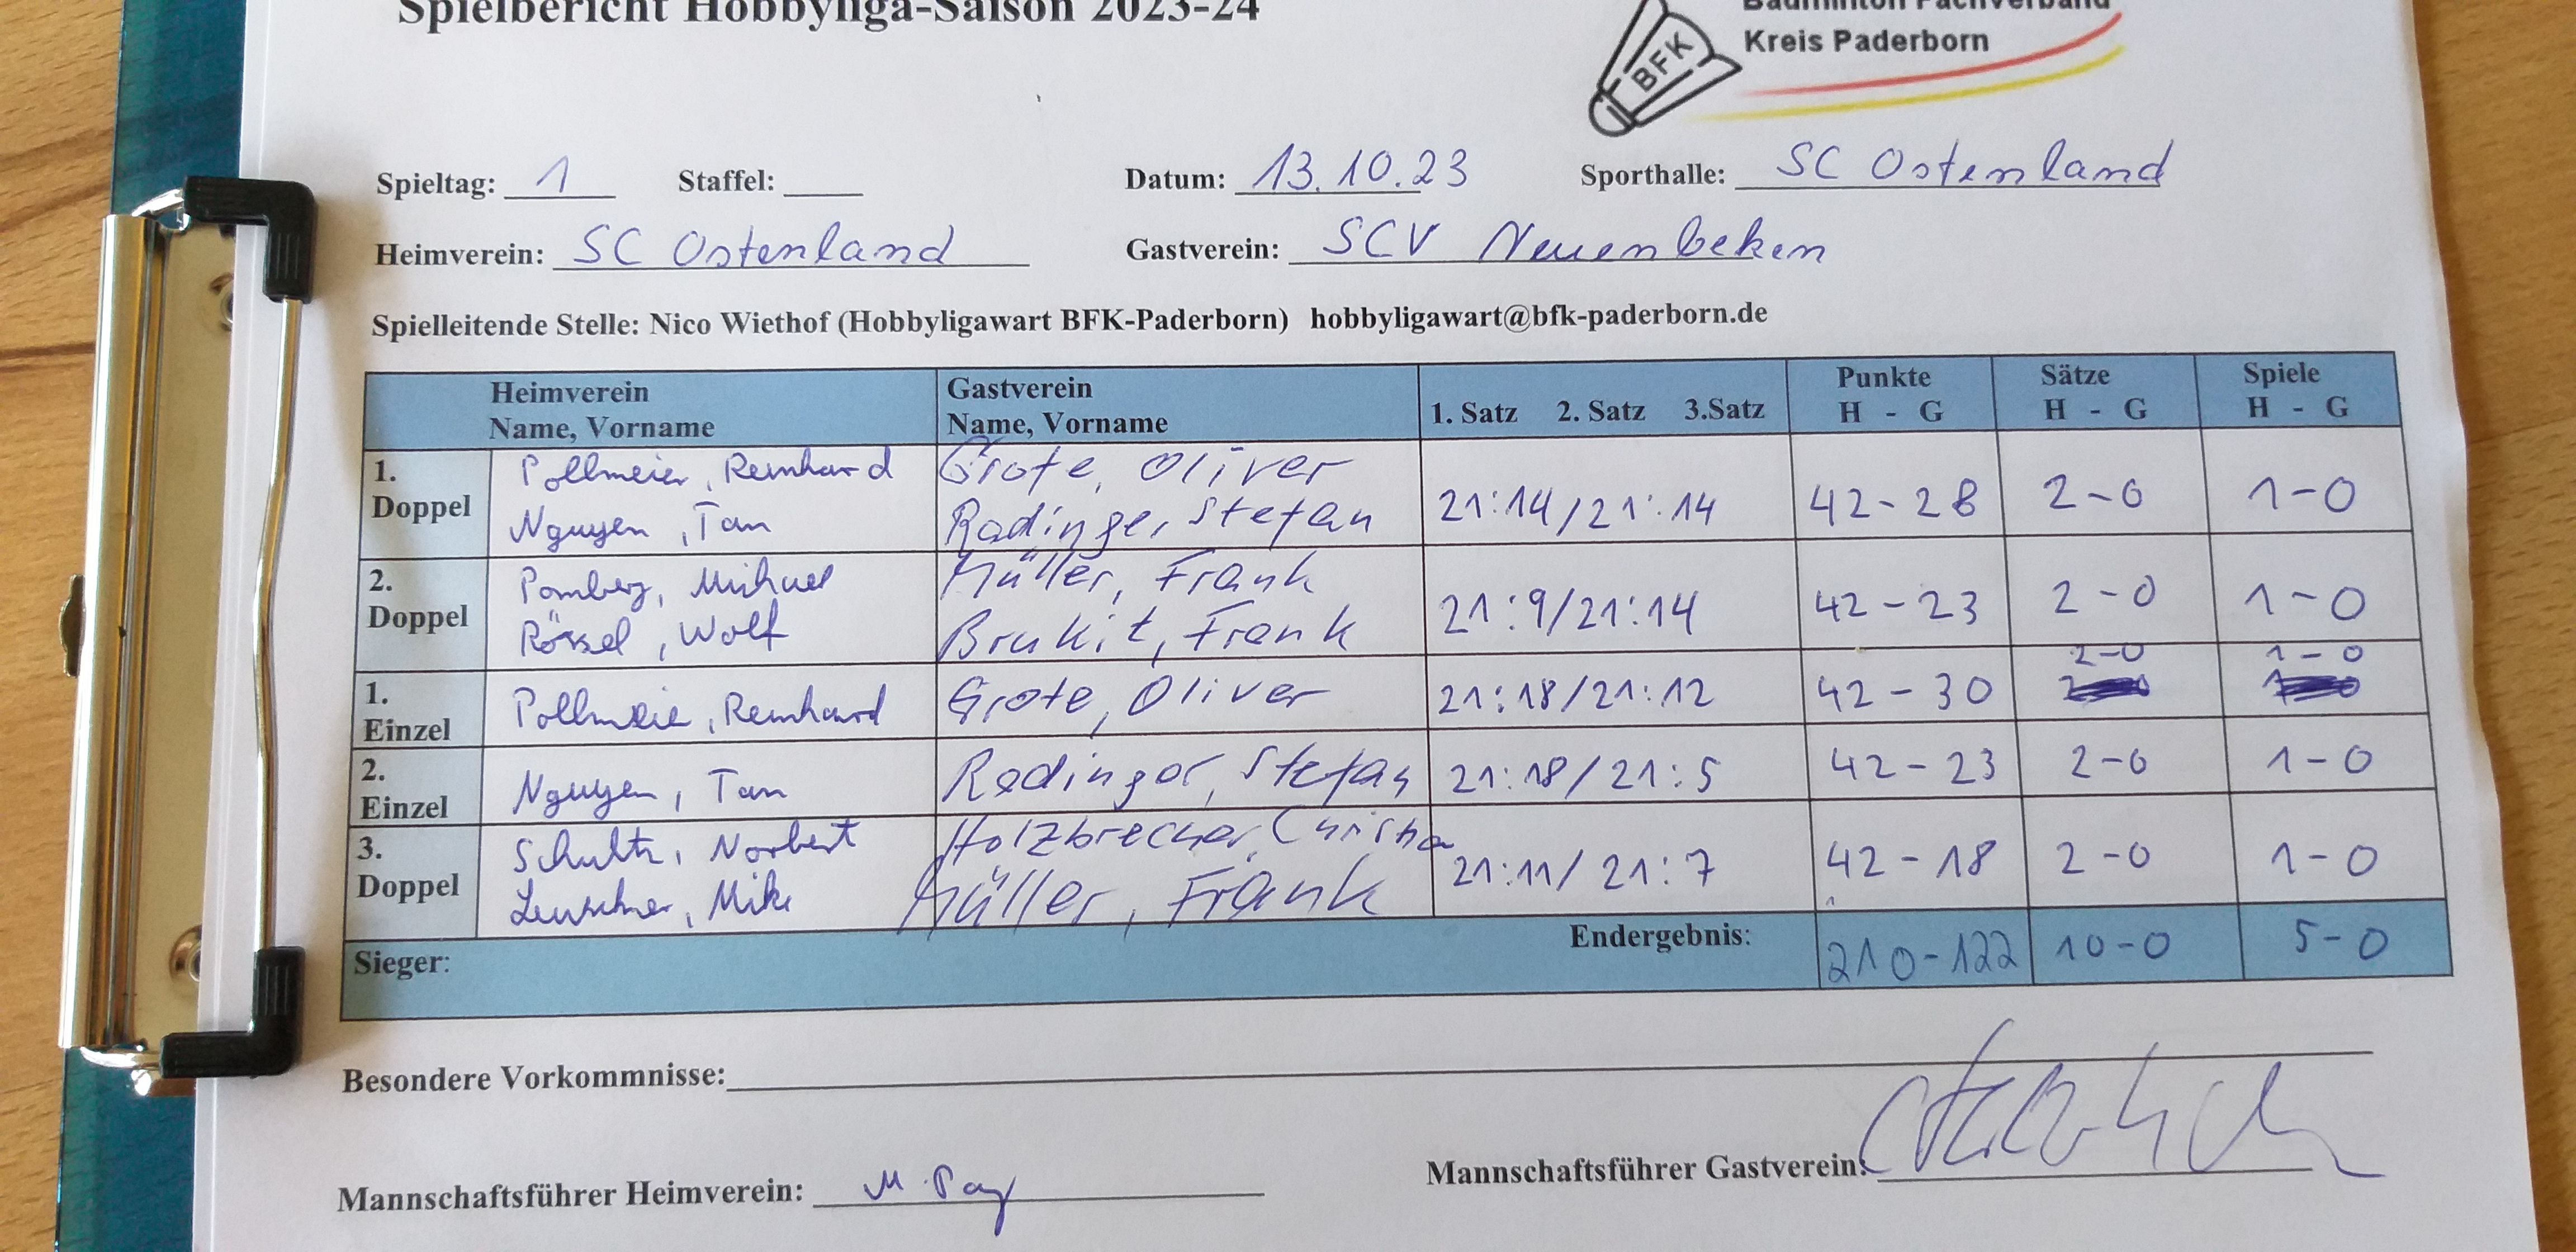 Spielbericht Hobbyliga-Saison 2023-24
Badminton Fachverband
Kreis Paderborn
BFK
Spieltag: 1 Staffel: Datum: 13.10.23 Sporthalle: SC Ostenland
Heimverein: SC Ostenland Gastverein: SCV Neuenbeken
Spielleitende Stelle: Nico Wiethof (Hobbyligawart BFK-Paderborn) hobbyligawart@bfk-paderborn.de
Heimverein Gastverein Punkte Sätze Spiele
Name, Vorname Name, Vorname 1. Satz 2. Satz 3.Satz H - G H - G H - G
1. Pollmeier, Reinhard Grote, Oliver
Doppel Nguyen, Tan Radinger, Stefan 21:14/21:14 42-28 2-0 1-0
2. Pomberg, Michael Müller, Frank
Doppel Rössel, Wolf Brukit, Frank 21:9/21:14 42-23 2-0 1-0
2-0 1-0
1. Pollmeie, Reinhard Grote, Oliver 21:18/21:12 42-30
Einzel
2. Nguyen, Tan Radinger, Stefan 21:18/21:5 42-23 2-0 1-0
Einzel
3. Schultz, Norbert Holzbrecher, Christia
Doppel Leuschner, Mike Müller, Frank 21:11/21:7 42-18 2-0 1-0
Sieger: Endergebnis: 210-122 10-0 5-0
Besondere Vorkommnisse:
Mannschaftsführer Heimverein: Mannschaftsführer Gastverein: